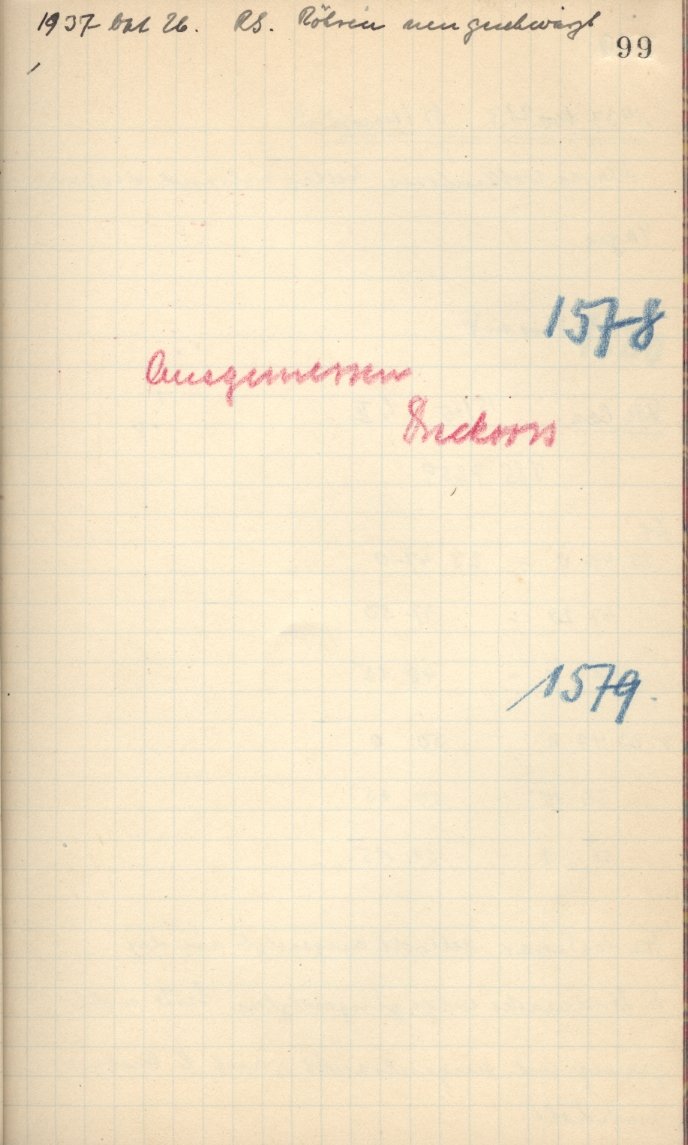 1937 Okt 26. RS. Röhren neu geschwärzt
99
1578
Ausgemessen
1579.